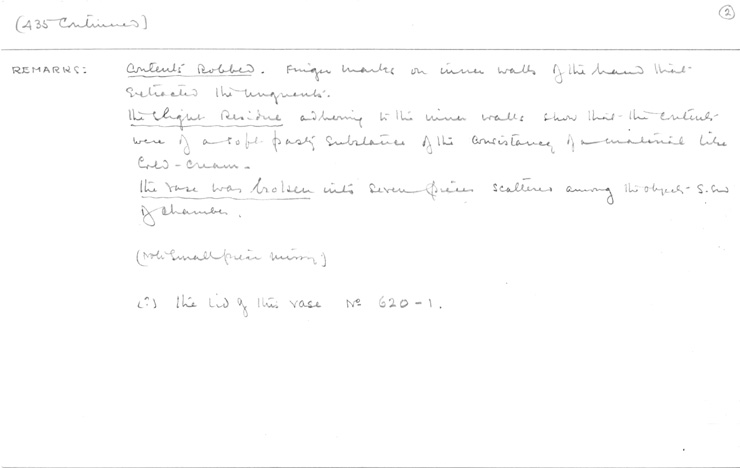 (2)
(435 Continued)
REMARKS: Contents Robbed. Finger marks on inner walls of the hand that
extracted the unguents.
The slight Residue adhering to the inner walls show that the contents
were of a soft pasty substance of the consistency of a material like
Cold-cream.
The vase was broken into seven pieces scattered among the objects S. End
of chamber.
(Note small piece missing)
(?) the lid of this vase No 620-1.